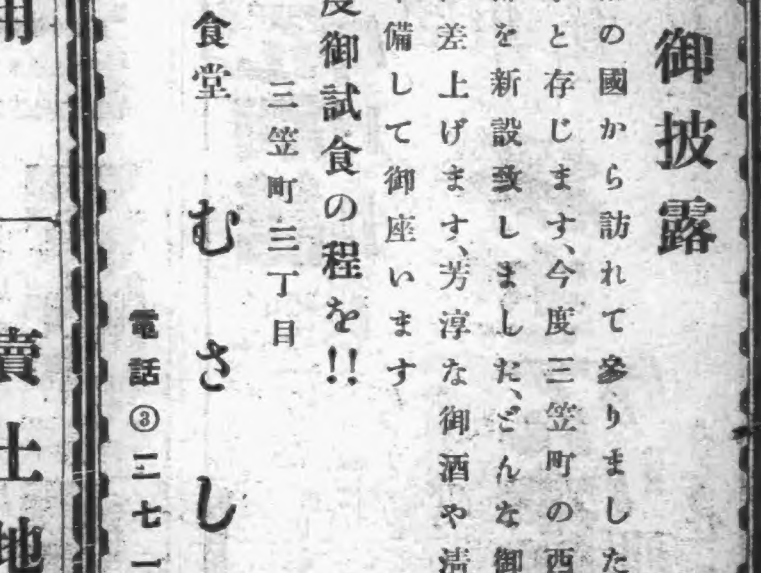 御披露
の國から訪れて參りました
と存じます、今度三笠町の西
を新設致しました、どんな御
差上げます、芳淳な御酒や清
備して御座います
度御試食の程を!!
三笠町三丁目
食堂 むさし
電話③三七一
賣土地